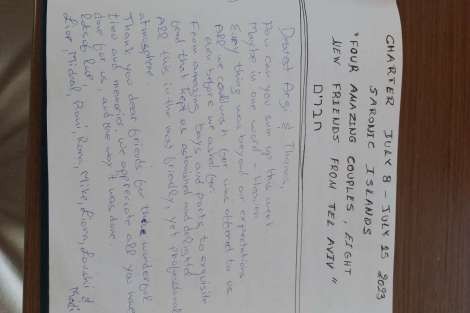 CHARTER JULY 8 - JULY 15 2023
SARONIC ISLANDS
"FOUR AMAZING COUPLES, EIGHT
NEW FRIENDS FROM TEL AVIV"
חברים
Dearest Argi & Thomas,
How can you sum up this week
Maybe in one word - Dream
Every thing was beyond our expectations
All we could wish for was offered to us
even before we asked for.
From amazing bays and ports, to exquisite
food that kept us astonished and delighted
All this in the most friendly, yet professional
atmosphere
Thank you dear friends for these wonderful
time and memories. we appreciate all you have
done for us, and the way it was done
Lior, Michal, Roni, Ram, Mike, Liora, &